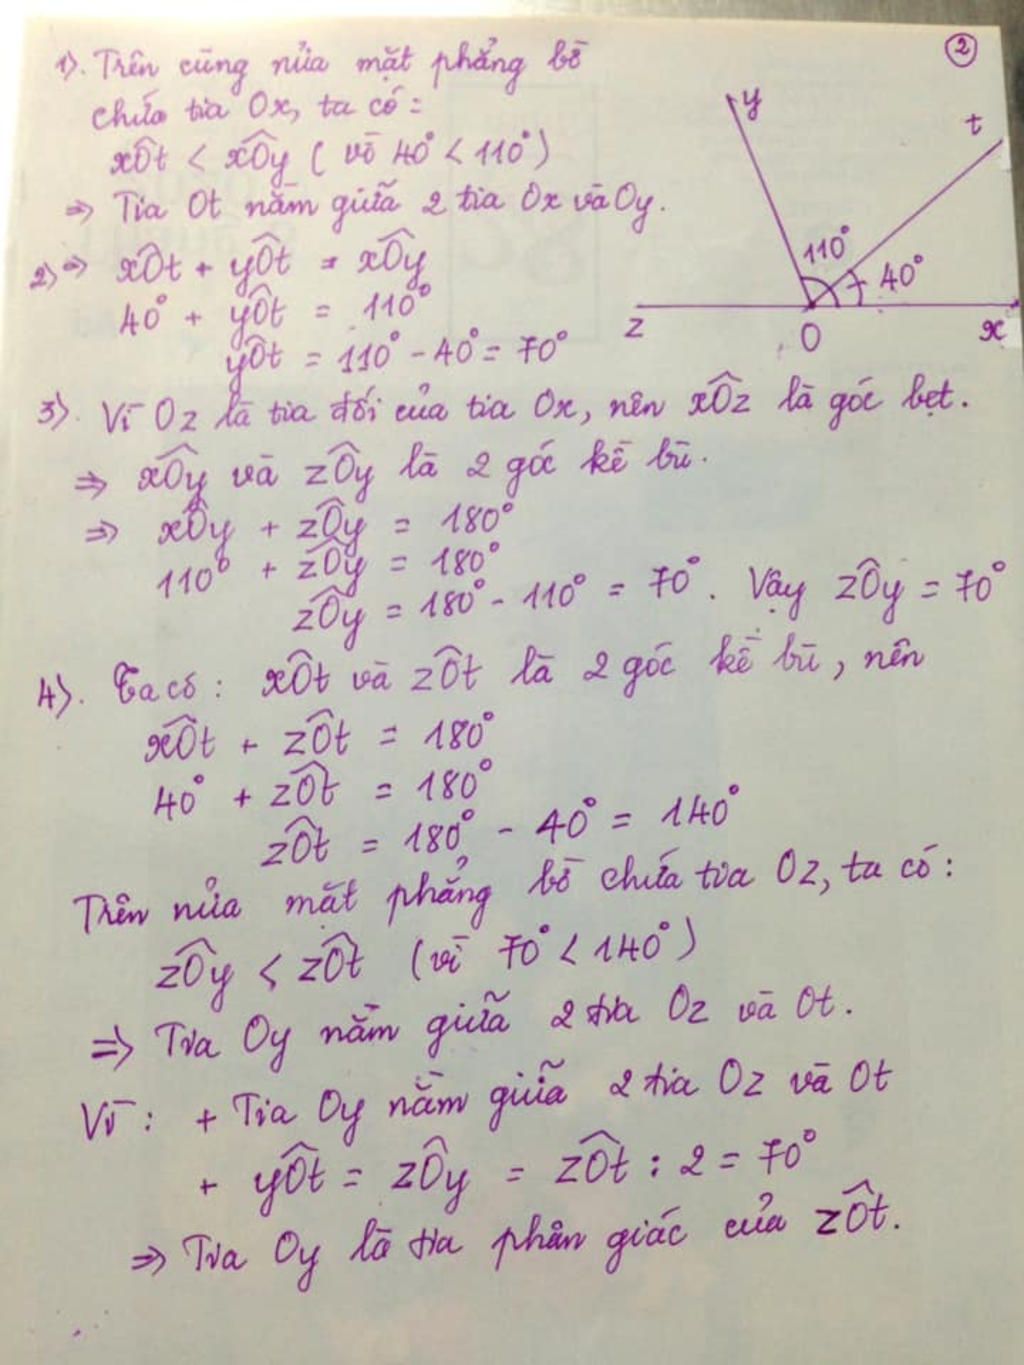 ②
1). Trên cùng nửa mặt phẳng bờ
chứa tia Ox, ta có:
xÔt < xÔy ( vì 40° < 110° )
⇒ Tia Ot nằm giữa 2 tia Ox và Oy.
2) ⇒ xÔt + yÔt = xÔy
40° + yÔt = 110°
yÔt = 110° - 40° = 70°
y
t
110°
40°
z
O
x
3). Vì Oz là tia đối của tia Ox, nên xÔz là góc bẹt.
⇒ xÔy và zÔy là 2 góc kề bù.
⇒ xÔy + zÔy = 180°
110° + zÔy = 180°
zÔy = 180° - 110° = 70°. Vậy zÔy = 70°
4). Ta có : xÔt và zÔt là 2 góc kề bù, nên
xÔt + zÔt = 180°
40° + zÔt = 180°
zÔt = 180° - 40° = 140°
Trên nửa mặt phẳng bờ chứa tia Oz, ta có:
zÔy < zÔt (vì 70° < 140°)
⇒ Tia Oy nằm giữa 2 tia Oz và Ot.
Vì : + Tia Oy nằm giữa 2 tia Oz và Ot
+ yÔt = zÔy = zÔt : 2 = 70°
⇒ Tia Oy là tia phân giác của zÔt.